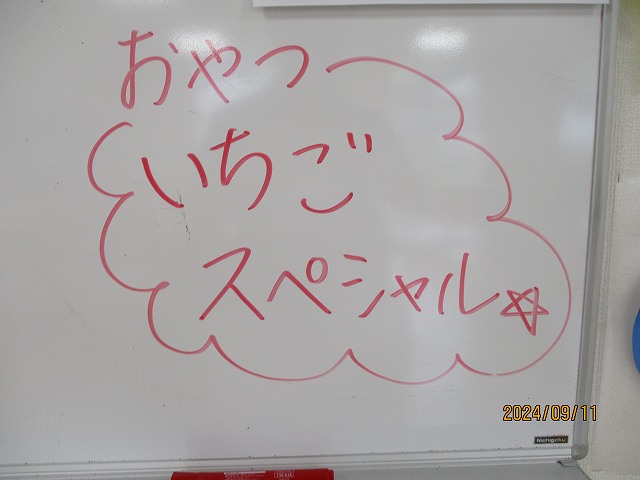 おやつ
いちご
スペシャル☆
2024/09/11
Nichigaku